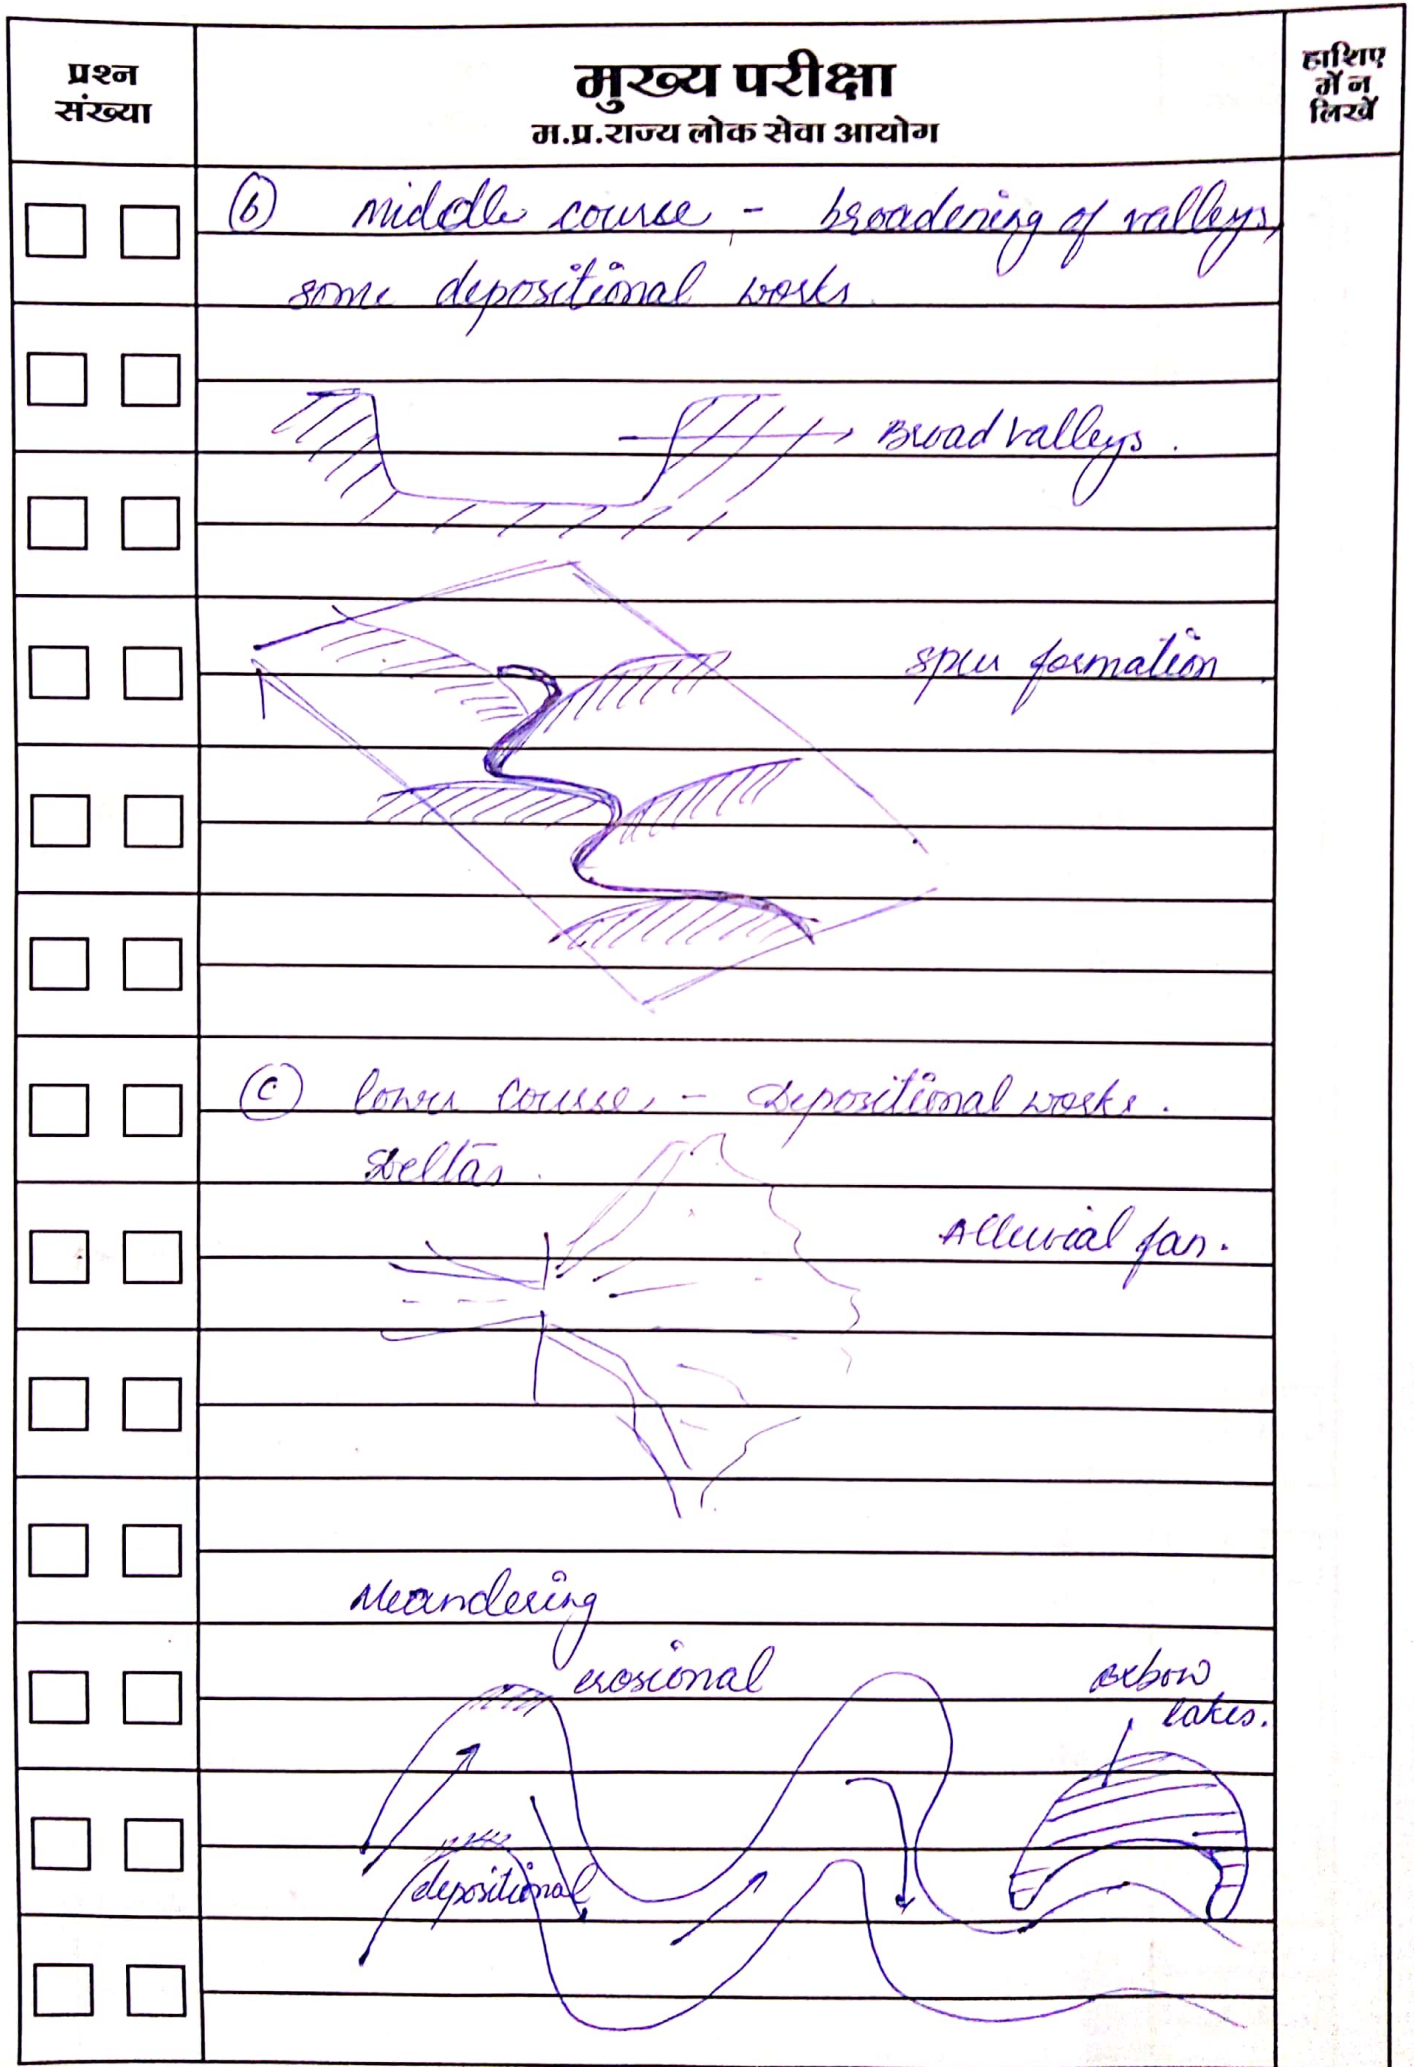 प्रश्न
संख्या
मुख्य परीक्षा
म.प्र.राज्य लोक सेवा आयोग
हाशिए
में न
लिखें
(b) middle course - broadening of valleys,
some depositional works.
Broad valleys.
spur formation.
(c) lower course - Depositional works.
Deltas.
Alluvial fan.
Meandering
erosional
oxbow
lakes.
depositional